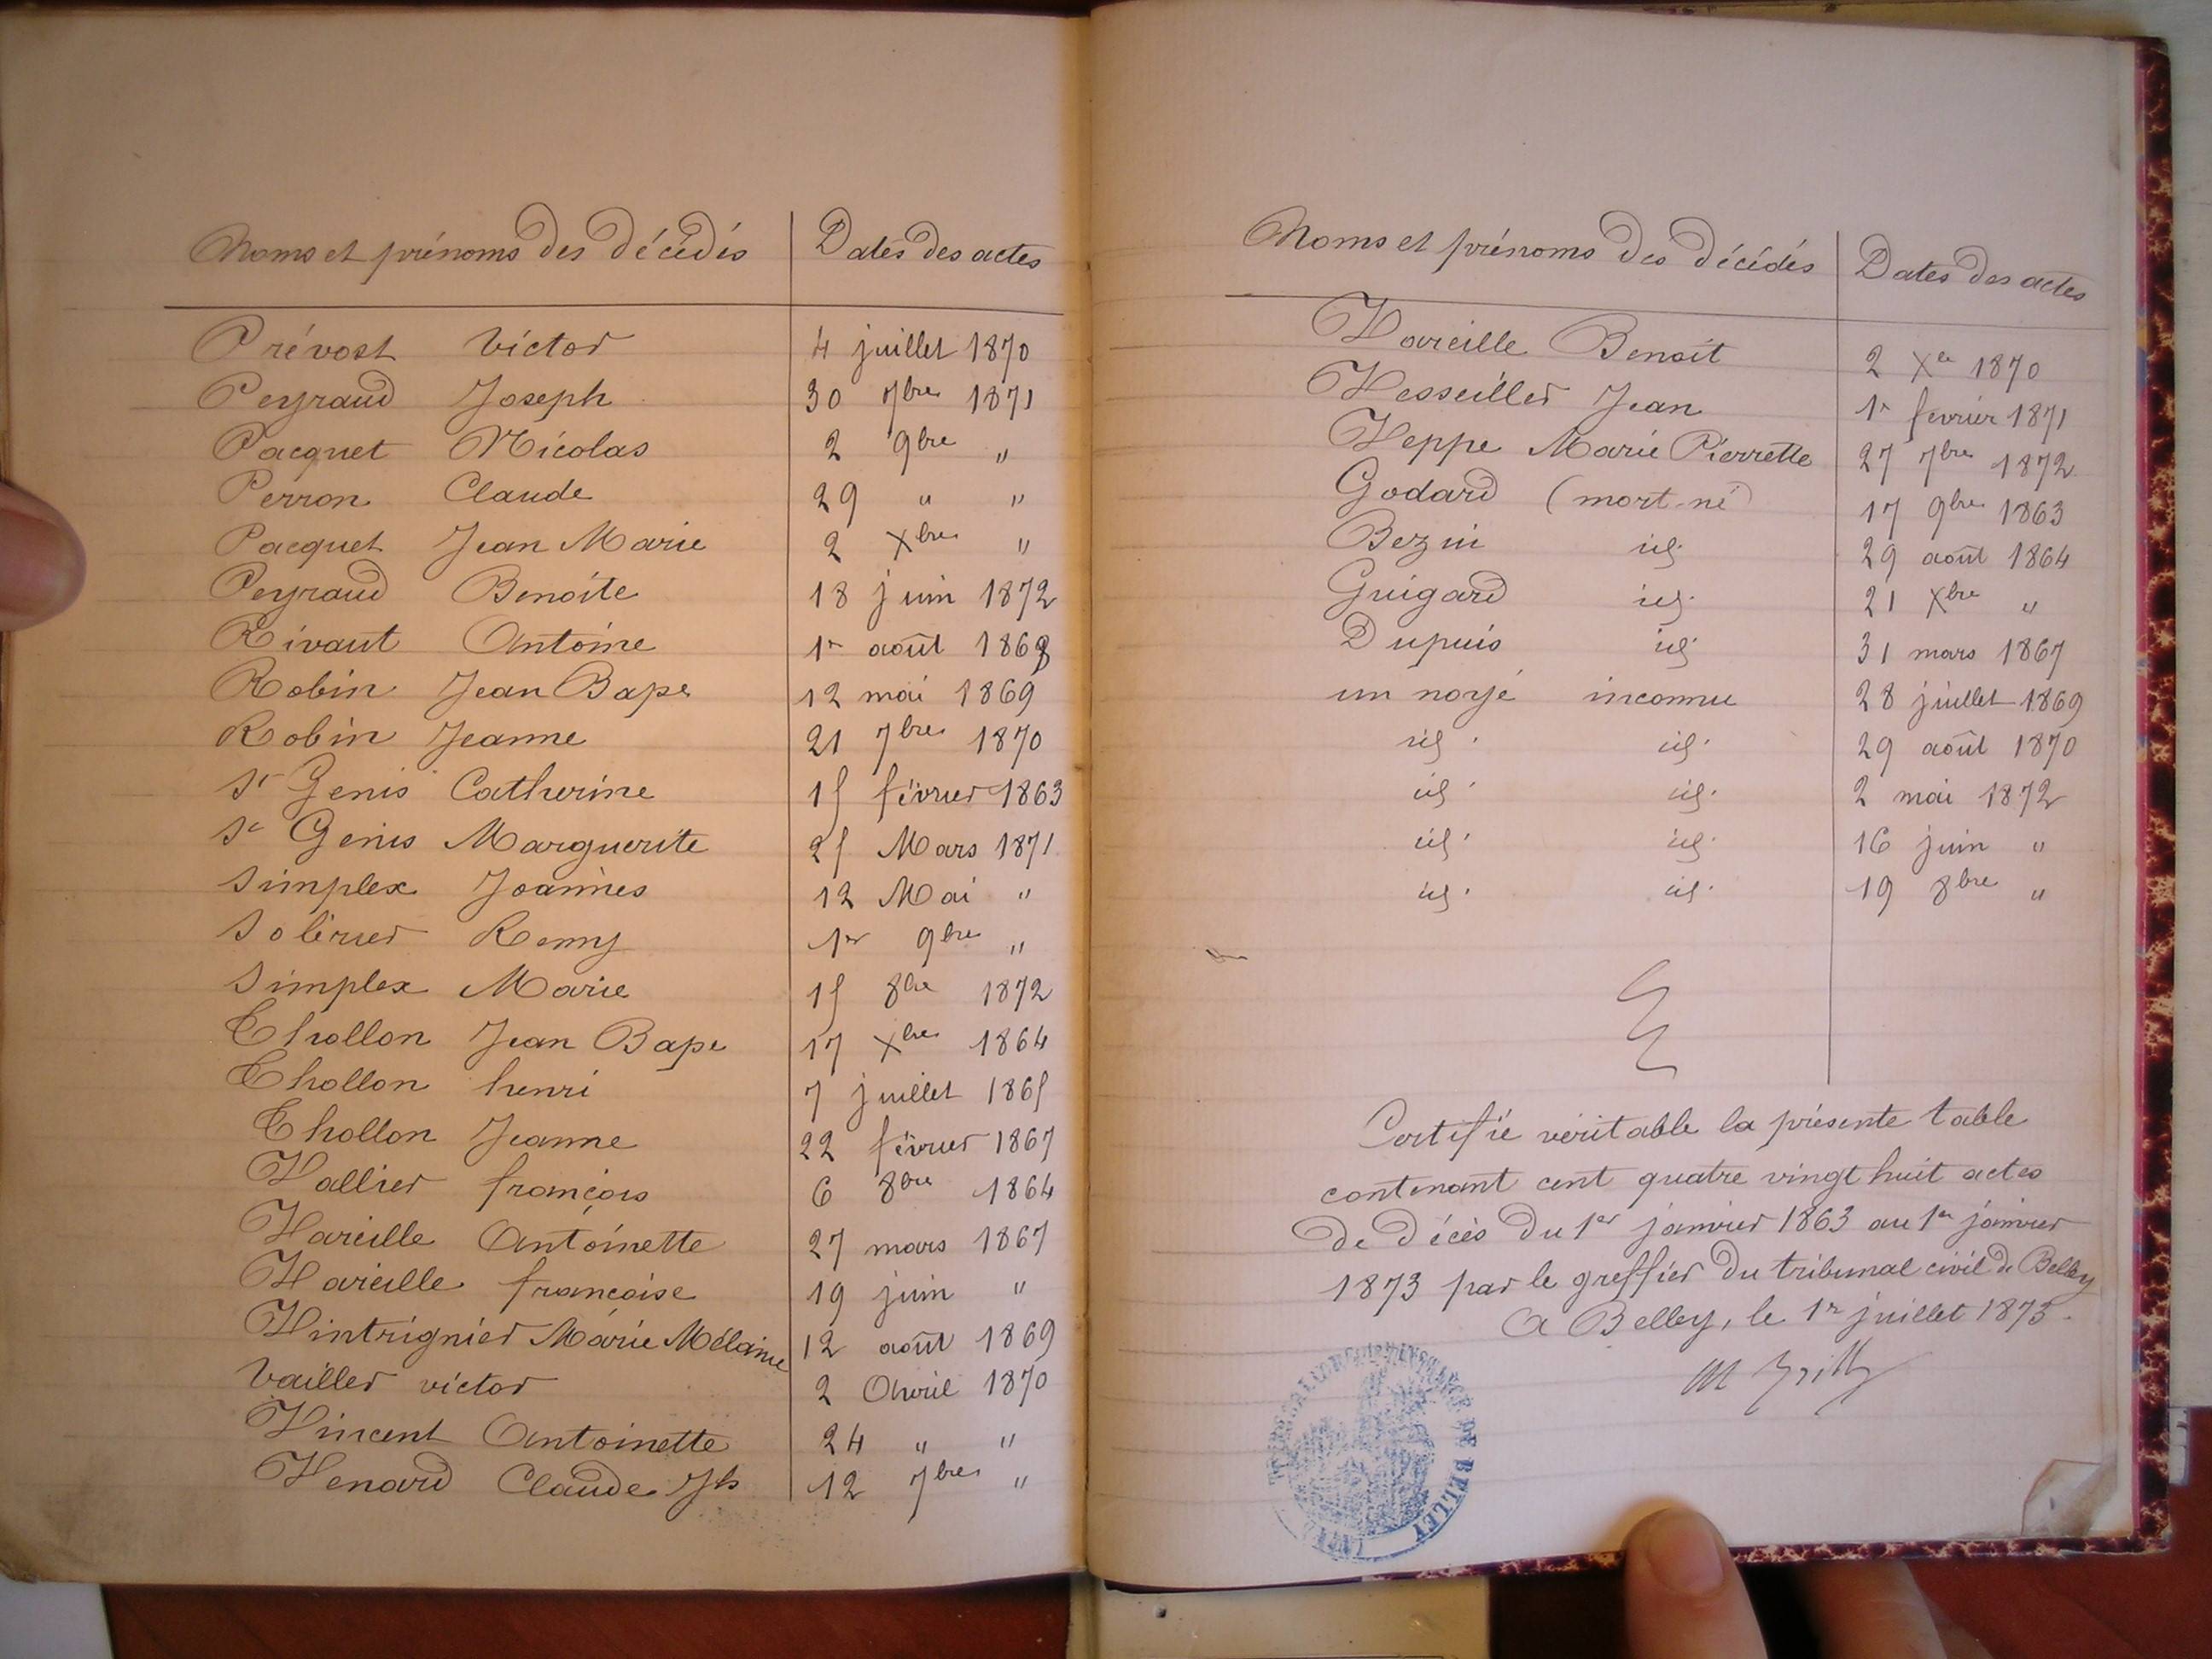 Noms et prénoms des décédés Dates des actes
Prévost Victor 4 juillet 1870
Peyraud Joseph 30 7bre 1871
Pacquet Nicolas 2 9bre "
Perron Claude 29 " "
Pacquet Jean Marie 2 Xbre "
Peyraud Benoite 18 juin 1872
Rivaut Antoine 1er août 1868
Robin Jean Bape 12 mai 1869
Robin Jeanne 21 7bre 1870
St Genis Catherine 15 février 1863
St Genis Marguerite 25 Mars 1871
Simplex Joannès 12 Mai "
Solérier Remy 1er 9bre "
Simplex Marie 15 8bre 1872
Thollon Jean Bape 17 Xbre 1864
Thollon henri 7 juillet 1865
Thollon Jeanne 22 février 1867
Vallier françois 6 8bre 1864
Vareille Antoinette 27 mars 1867
Vareille françoise 19 juin "
Vintrignier Marie Mélanie 12 août 1869
Vailler victor 2 Avril 1870
Vincent Antoinette 24 " "
Venard Claude Jh 12 7bre "
Noms et prénoms des décédés Dates des actes
Vareille Benoit 2 Xbre 1870
Vesseiller Jean 1er février 1871
Veppe Marie Pierrette 27 7bre 1872
Godard (mort-né) 17 9bre 1863
Bezin id. 29 août 1864
Guigard id. 21 Xbre "
Dupuis id. 31 mars 1867
un noyé inconnu 28 juillet 1869
id. id. 29 août 1870
id. id. 2 mai 1872
id. id. 16 juin "
id. id. 19 8bre "
Certifié véritable la présente table
contenant cent quatre vingt huit actes
de décès du 1er janvier 1863 au 1er janvier
1873 par le greffier du tribunal civil de Belley
A Belley, le 1er juillet 1873.
INSTANCE DE BELLEY